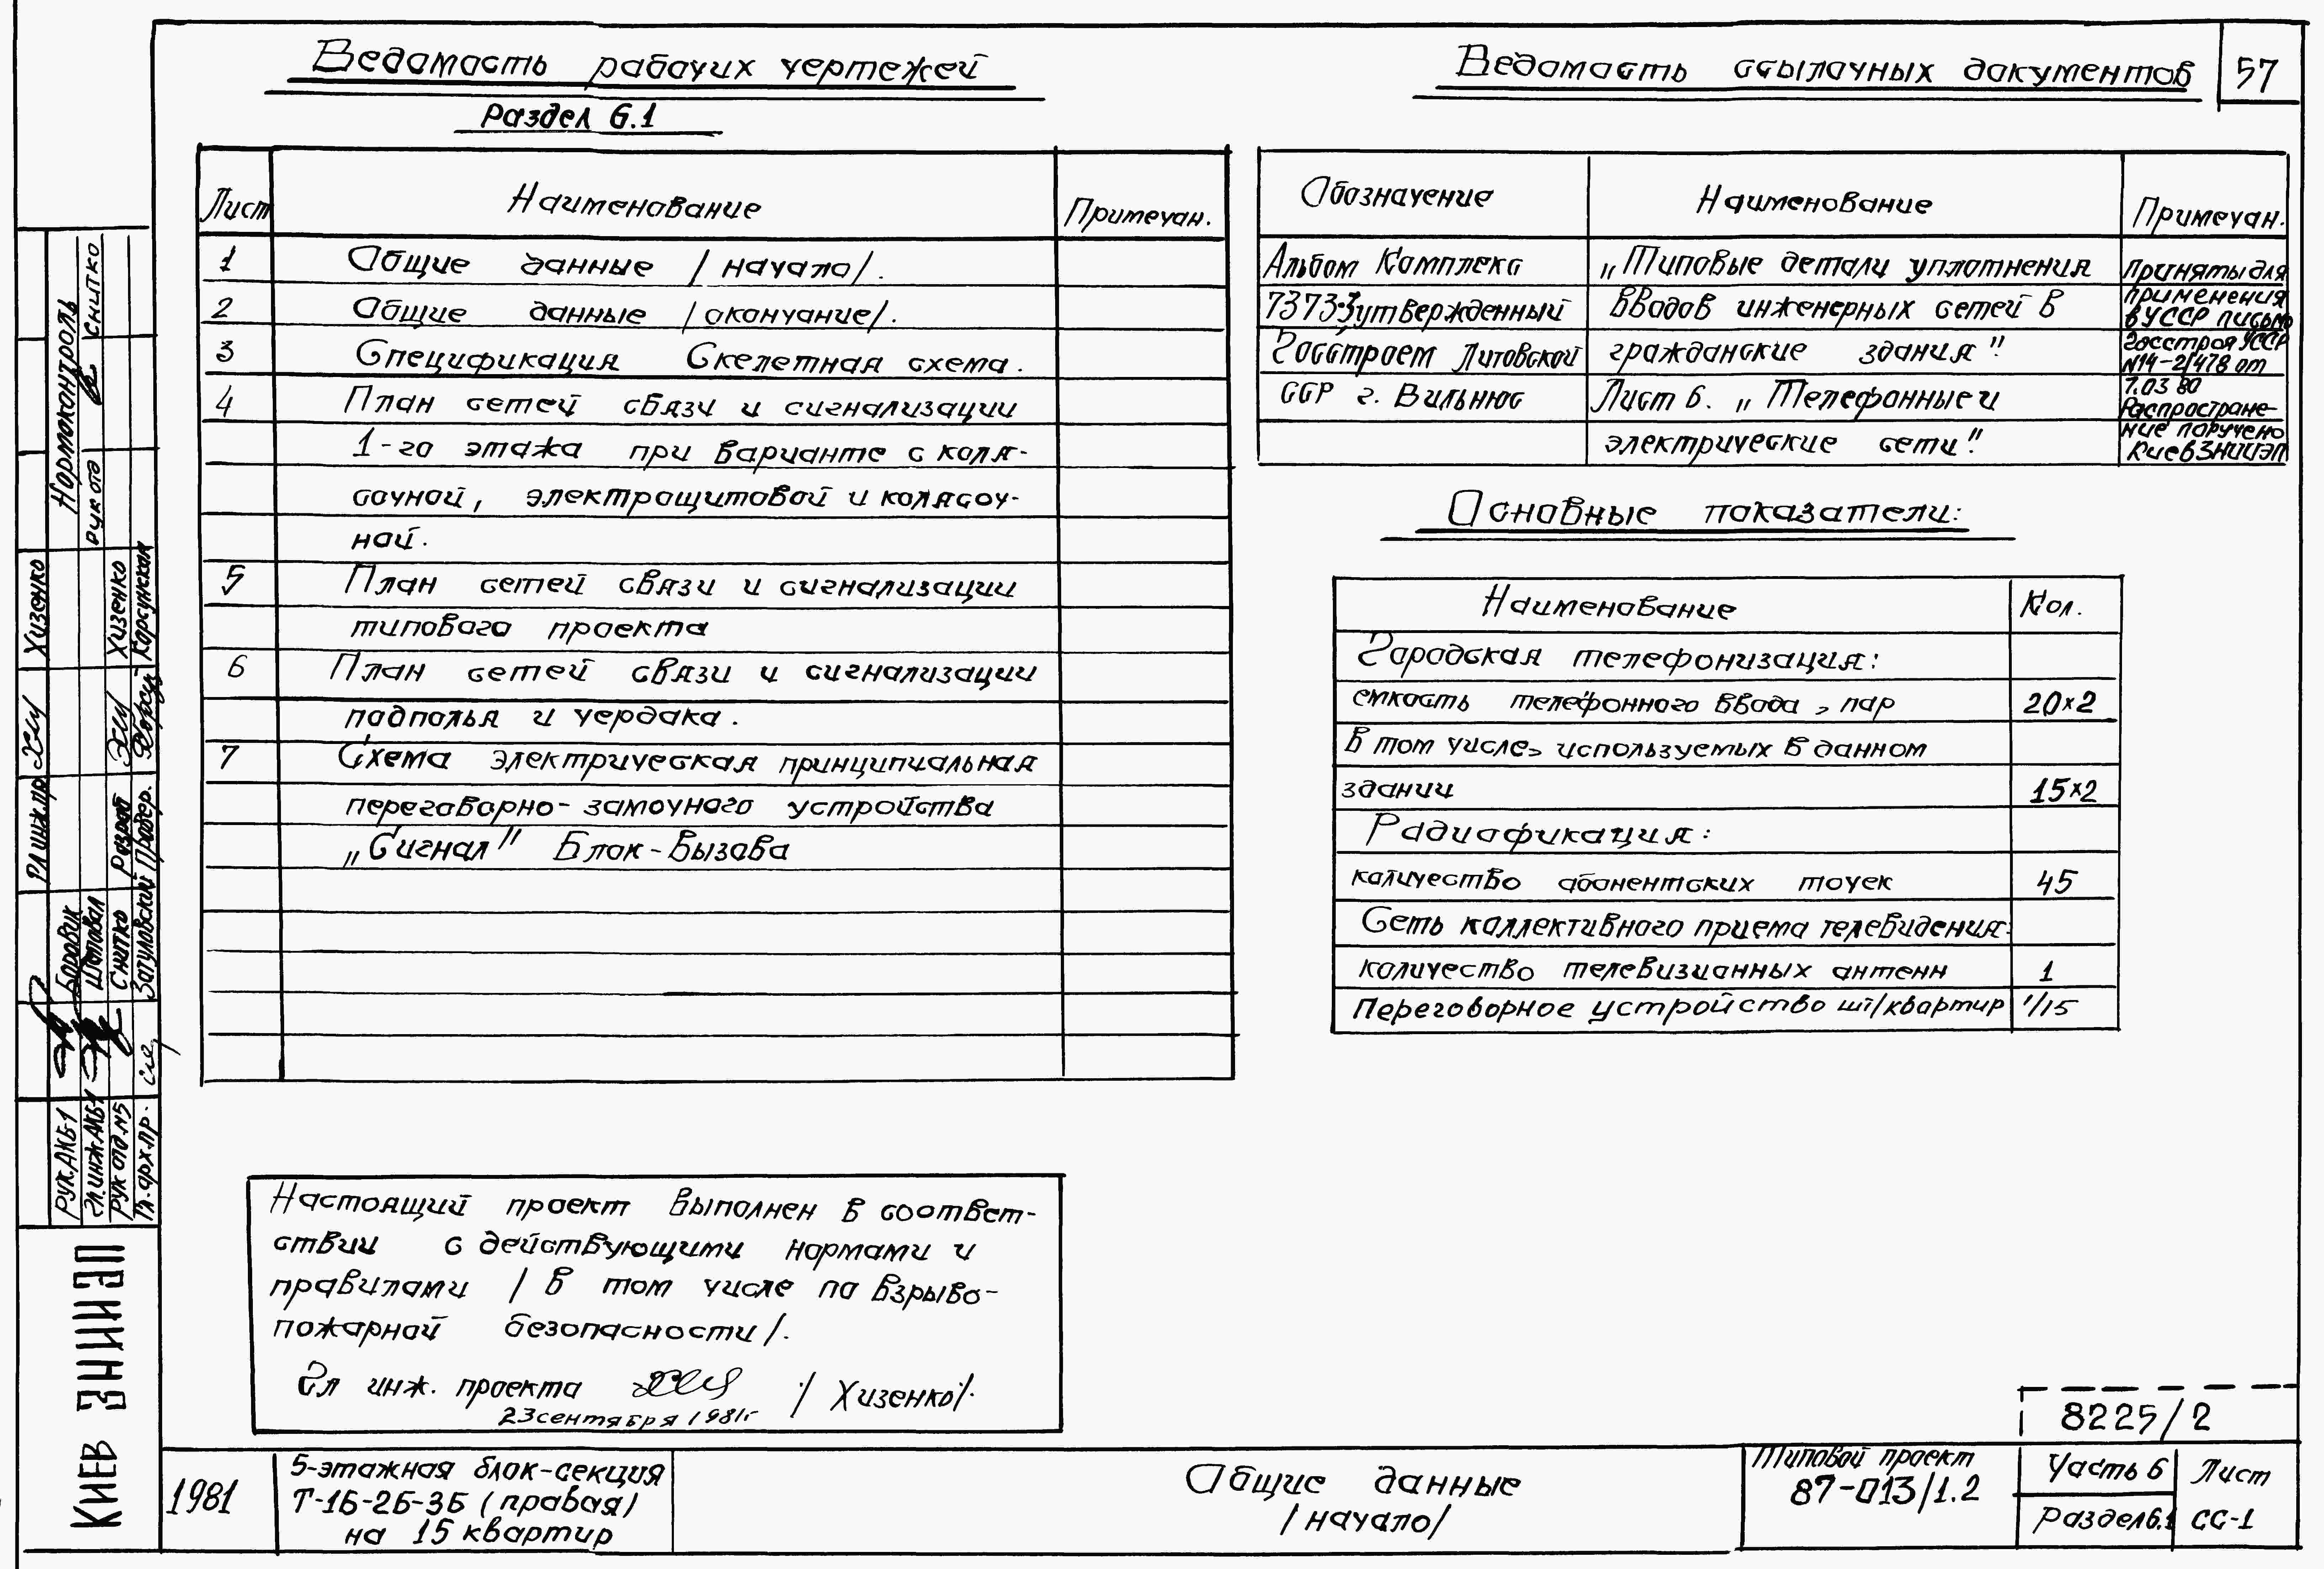 Ведомость рабочих чертежей
Раздел 6.1
Лист Наименование Примечан.
1 Общие данные /начало/.
2 Общие данные /окончание/.
3 Спецификация Скелетная схема.
4 План сетей связи и сигнализации
1-го этажа при варианте с коля-
сочной, электрощитовой и колясоч-
ной.
5 План сетей связи и сигнализации
типового проекта
6 План сетей связи и сигнализации
подполья и чердака.
7 Схема электрическая принципиальная
переговорно-замочного устройства
„Сигнал" Блок-вызова
Ведомость ссылочных документов
57
Обозначение Наименование Примечан.
Альбом Комплекс „Типовые детали уплотнения
7373-3 утвержденный вводов инженерных сетей в
Госстроем Литовской гражданские здания".
ССР г. Вильнюс Лист 6. „Телефонные и
электрические сети".
приняты для
применения
в УССР письмо
Госстроя УССР
N14-2/478 от
7.03 80
Распростране-
ние поручено
КиевЗНИИЭП
Основные показатели:
Наименование Кол.
Городская телефонизация:
емкость телефонного ввода, пар 20×2
в том числе, используемых в данном
здании 15×2
Радиофикация:
количество абонентских точек 45
Сеть коллективного приема телевидения:
количество телевизионных антенн 1
Переговорное устройство шт/квартир 1/15
Настоящий проект выполнен в соответ-
ствии с действующими нормами и
правилами /в том числе по взрыво-
пожарной безопасности/.
Гл инж. проекта /Хизенко/.
23 сентября 1981г
8225/2
1981
5-этажная блок-секция
Т-1Б-2Б-3Б (правая)
на 15 квартир
Общие данные
/начало/
Типовой проект
87-013/1.2
Часть 6
Раздел 6.1
Лист
СС-1
КИЕВ ЗНИИЭП
Рук.АКБ-1 Боровик
Гл.инж.АКБ-1 Шаповал
Рук отд.№5 Снитко
Гл.арх.пр. Затуловский
Гл инж.пр. Хизенко
Разраб Хизенко
Провер. Корсунская
Нормоконтроль
Рук отд Снитко